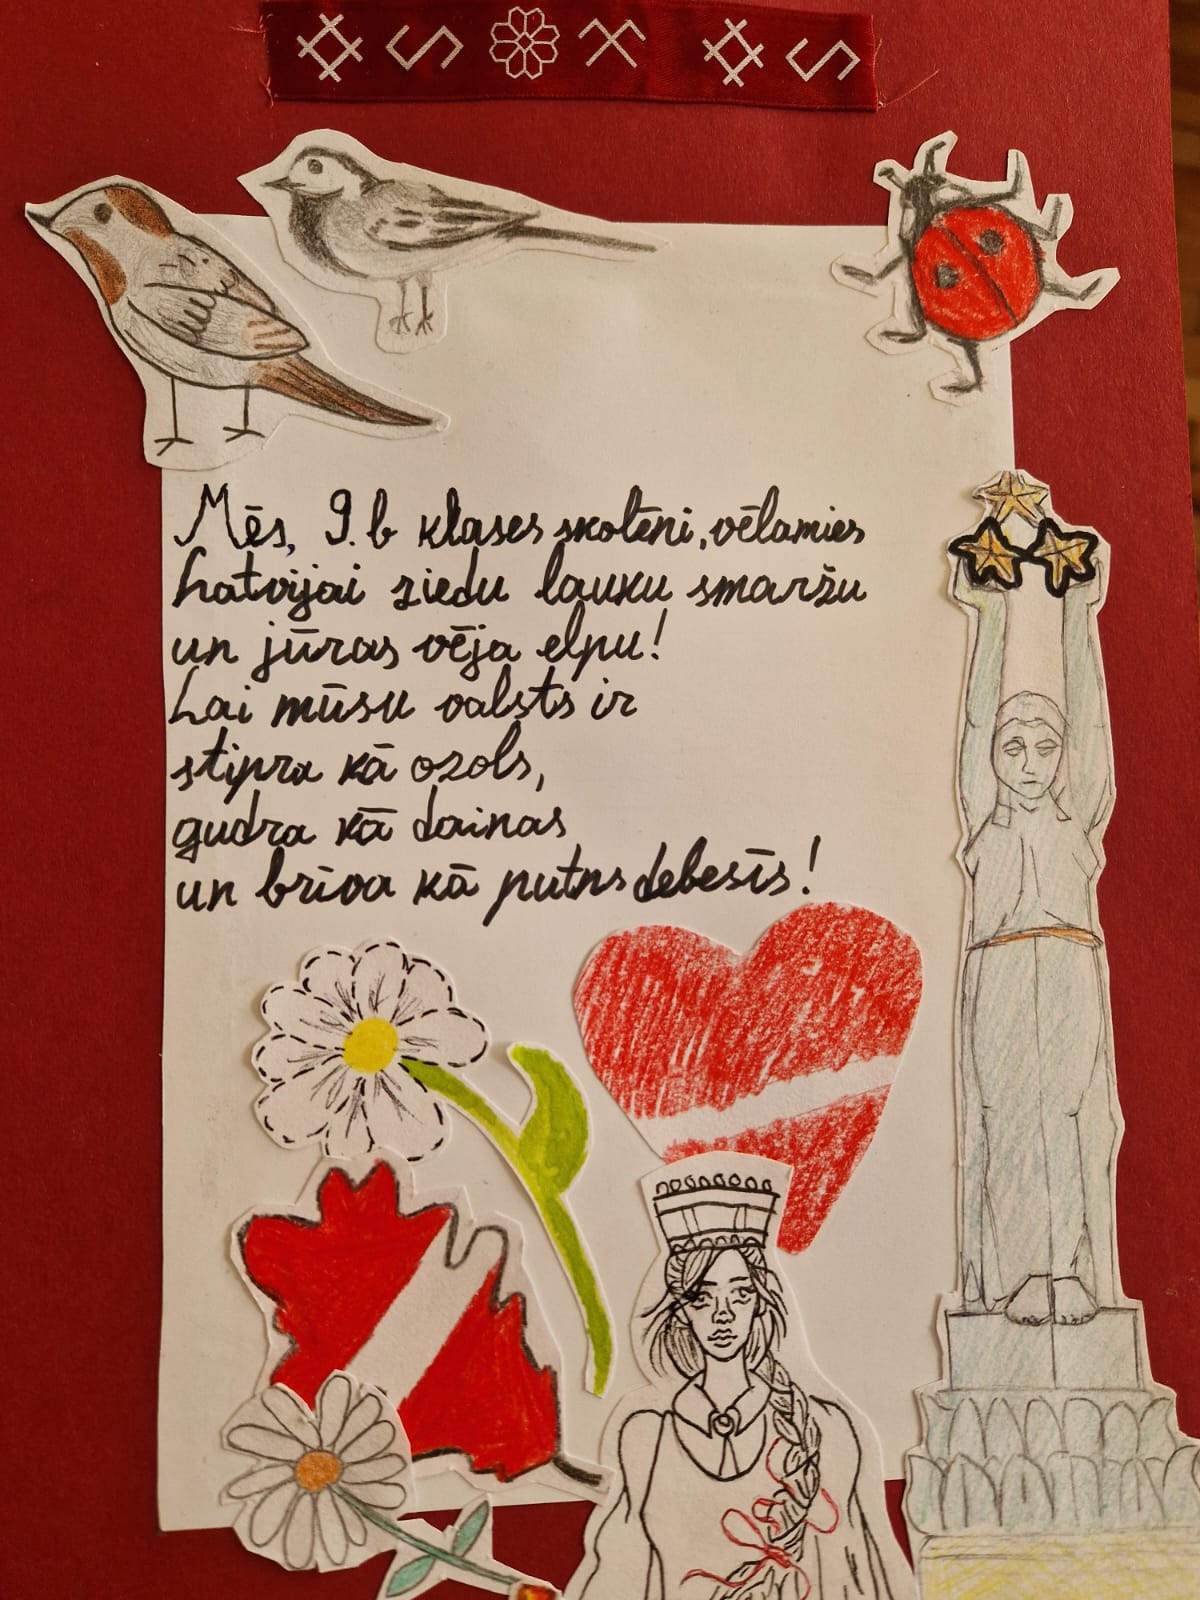 Mēs, 9.b klases skolēni, vēlamies
Latvijai ziedu lauku smaržu
un jūras vēja elpu!
Lai mūsu valsts ir
stipra kā ozols,
gudra kā dainas
un brīva kā putns debesīs!